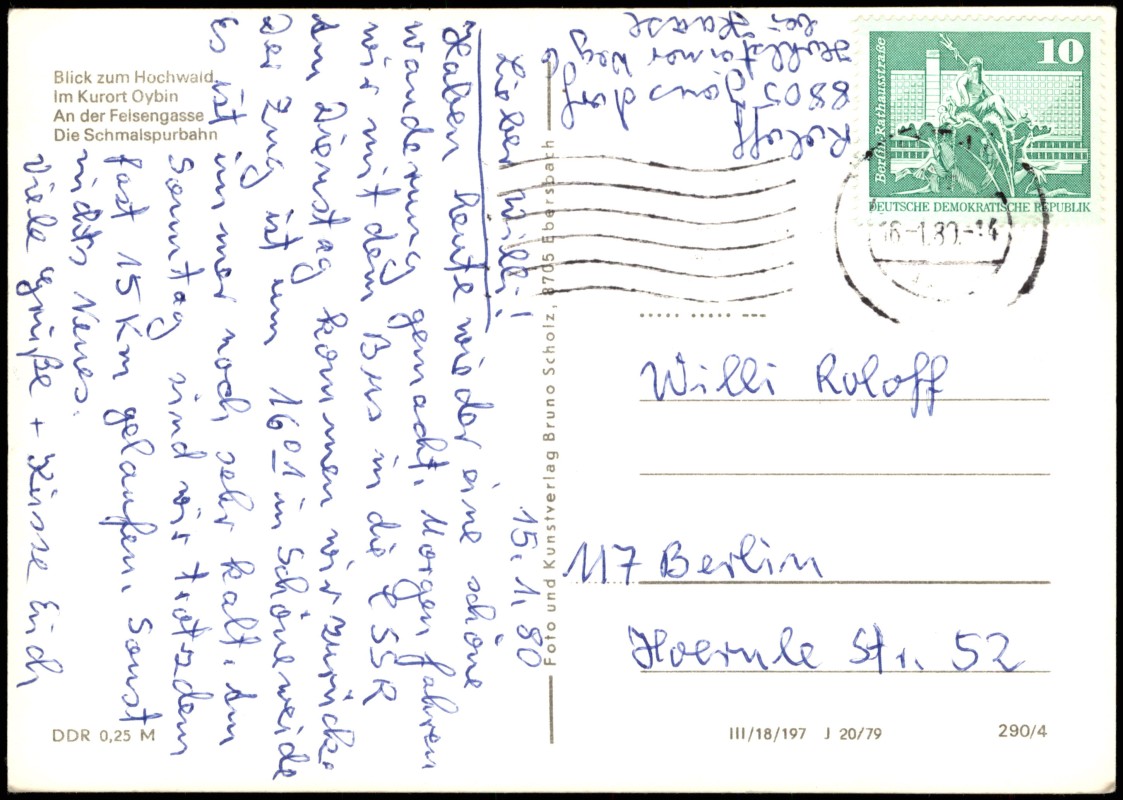 Blick zum Hochwald.
Im Kurort Oybin
An der Felsengasse
Die Schmalspurbahn
15.1.80
Lieber Willi!
Haben heute wieder eine schöne
Wanderung gemacht. Morgen fahren
wir mit dem Bus in die ČSSR
Am Dienstag kommen wir zurück.
Der Zug ist um 16⁰¹ in Schöneweide
Es ist immer noch sehr kalt. Am
Sonntag sind wir trotzdem
fast 15 Km gelaufen. Sonst
nichts Neues.
Viele Grüße + Küsse Erich
DDR 0,25 M
Foto und Kunstverlag Bruno Scholz, 8705 Ebersbach
Roloff
8805 Jonsdorf
Weg 6
bei Haase
10
Berlin, Rathausstraße
DEUTSCHE DEMOKRATISCHE REPUBLIK
16-1.80.-14
Willi Roloff
117 Berlin
Hoernle Str. 52
III/18/197 J 20/79
290/4